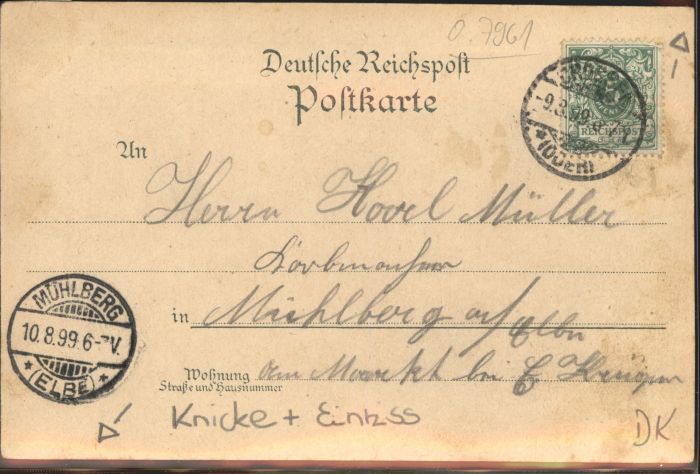 O. 7961
Deutsche Reichspost
Postkarte
-9.8.99.
(ODER)
REICHSPOST
An
Herrn Karl Müller
Korbmacher
in Mühlberg a/Elbe
Wohnung am Markt bei E Krüger
Straße und Hausnummer
MÜHLBERG
10.8.99 6-7V.
* (ELBE) *
Knicke + Einriss
DK